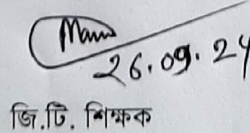 26.09.24
জি.টি. শিক্ষক